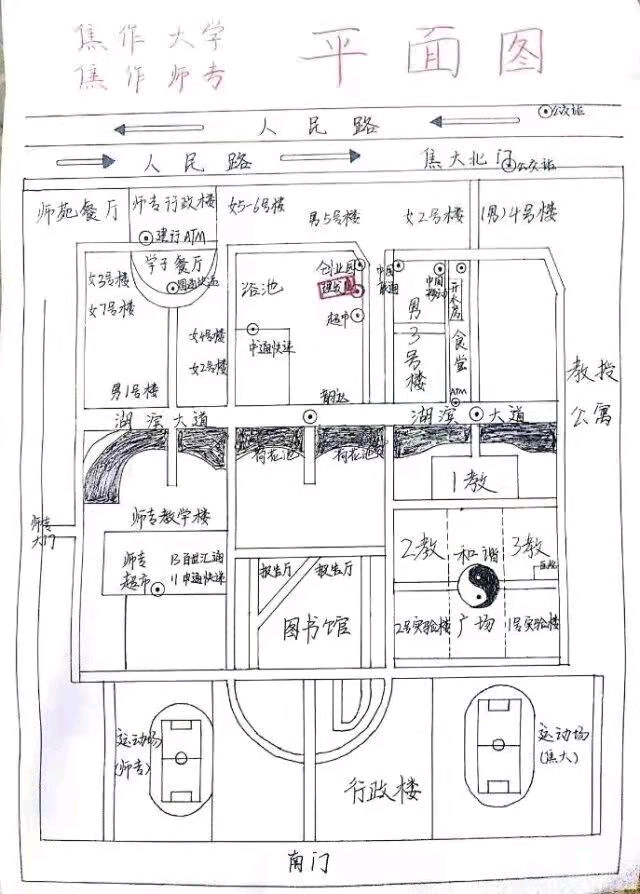 焦作大学 平面图
焦作师专
公交站
人民路
人民路
焦大北门
公交站
师苑餐厅
师专行政楼
女5-6号楼
男5号楼
女2号楼
(男)4号楼
建行ATM
学子餐厅
女3号楼
女7号楼
浴池
创业园
理发店
超市
中国联通
中国移动
开水房
男3号楼
食堂
ATM
女4号楼
女2号楼
中通快递
男1号楼
朝达
教授公寓
湖滨大道
湖滨大道
荷花池
荷花池
1教
师专大门
师专教学楼
师专超市
13百世汇通
11中通快递
报告厅
报告厅
图书馆
2教
和谐广场
3教
2号实验楼
1号实验楼
运动场(师专)
运动场(焦大)
行政楼
南门